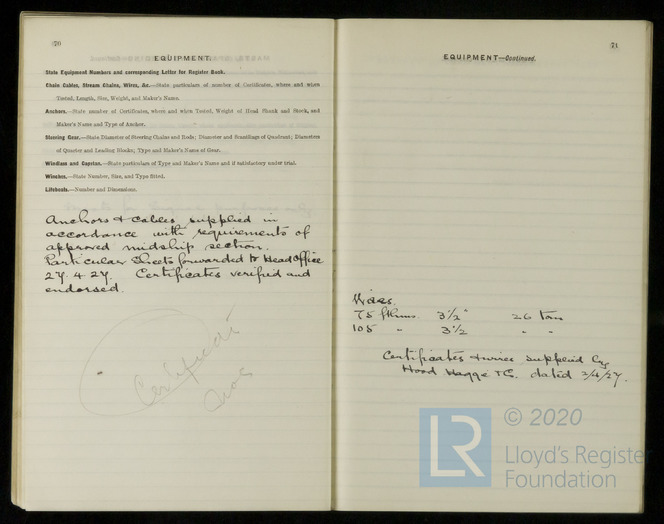 70
EQUIPMENT.
State Equipment Numbers and corresponding Letter for Register Book.
Chain Cables, Stream Chains, Wires, &c.—State particulars of number of Certificates, where and when
Tested, Length, Size, Weight, and Maker's Name.
Anchors.—State number of Certificates, where and when Tested, Weight of Head Shank and Stock, and
Maker's Name and Type of Anchor.
Steering Gear.—State Diameter of Steering Chains and Rods; Diameter and Scantlings of Quadrant; Diameters
of Quarter and Leading Blocks; Type and Maker's Name of Gear.
Windlass and Capstan.—State particulars of Type and Maker's Name and if satisfactory under trial.
Winches.—State Number, Size, and Type fitted.
Lifebuoys.—Number and Dimensions.
Anchors & cables supplied in
accordance with requirements of
approved midship section.
Particular Sheets forwarded to Head Office
27.4.27. Certificates verified and
endorsed.
Certificate
Nos
71
EQUIPMENT—Continued.
Wires.
75 fthms 3½" 26 tons
105 " 3½ " "
Certificates & wires supplied by
Hood Haggie dated 2/4/27.
LR
© 2020
Lloyd's Register
Foundation